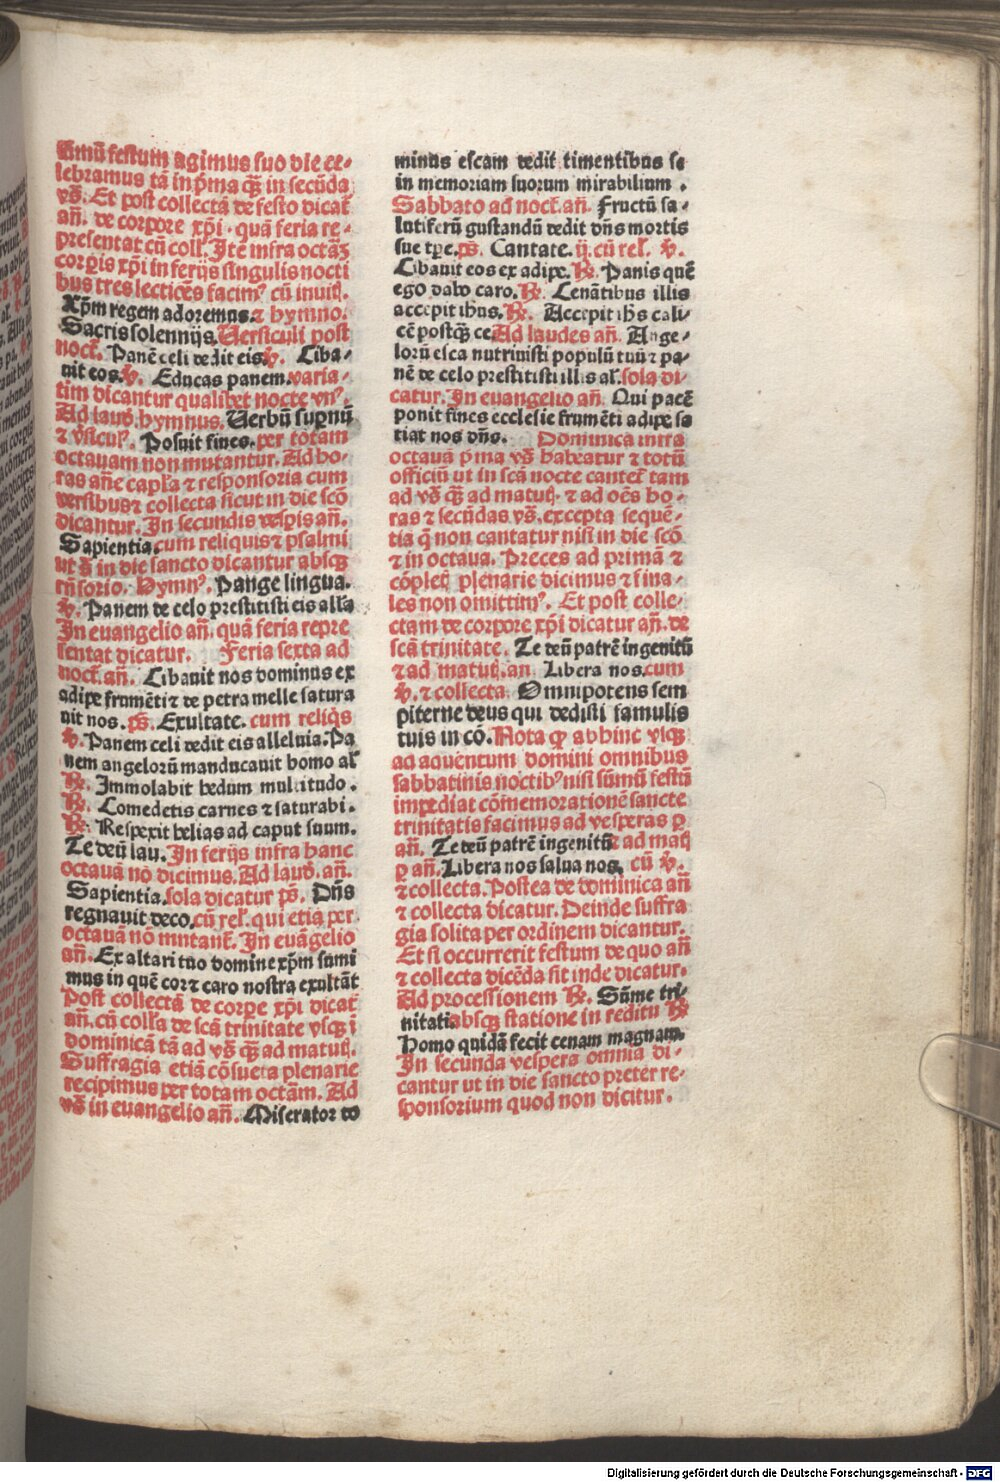 festum agimus suo die ce-
lebramus tā in pma qȝ in secūda
vs. Et post collectā de festo dicat̄
an̄. de corpore xpi. quā feria re-
presentat cū coll. Itē infra octāȝ
corpis xpi in ferijs singulis nocti
bus tres lectiōes facim⁹ cū inuit.
Xpm regem adoremus. ⁊ hymno.
Sacris solennijs. Uersiculi post
noct. Panē celi dedit eis. ℣. Liba-
uit eos. ℣. Educas panem. varia-
tim dicantur qualibet nocte vn⁹.
Ad laud. hymnus. Uerbū supnū
⁊ v̄sicu⁹. Posuit fines. per totam
octauam non mutantur. Ad ho-
ras an̄e capl'a ⁊ responsoria cum
versibus ⁊ collecta sicut in die scō
dicantur. In secundis vespis an̄.
Sapientia. cum reliquis ⁊ psalmi
ut s̄ in die sancto dicantur absqȝ
rn̄sorio. Hymn⁹. Pange lingua.
℣. Panem de celo prestitisti eis all'a
In euangelio an̄. quā feria repre
sentat dicatur. Feria sexta ad
noct. an̄. Cibauit nos dominus ex
adipe frumēti ⁊ de petra melle satura
uit nos. ps. Exultate. cum reliqis
℣. Panem celi dedit eis alleluia. Pa
nem angelorū manducauit homo al'
℟. Immolabit hedum multitudo.
℟. Comedetis carnes ⁊ saturabi.
℟. Respexit helias ad caput suum.
Te deū lau. In ferijs infra hanc
octauā nō dicimus. Ad laud. an̄.
Sapientia. sola dicatur ps. Dn̄s
regnauit deco. cū rel'. qui etiā per
octauā nō mutant̄. In euāgelio
an̄. Ex altari tuo domine xpm sumi
mus in quē cor ⁊ caro nostra exultāt
Post collectā de corpe xpi dicat̄
an̄. cū coll'a de scā trinitate vsqȝ ī
dominicā tā ad vs qȝ ad matut.
Suffragia etiā cōsueta plenarie
recipimus per totam octām. Ad
vs in euangelio an̄. Miserator do
minus escam dedit timentibus se
in memoriam suorum mirabilium.
Sabbato ad noct. an̄. Fructū sa-
lutiferū gustandū dedit dn̄s mortis
sue tpe. ps. Cantate. ij. cū rel'. ℣.
Cibauit eos ex adipe. ℟. Panis quē
ego dabo caro. ℟. Cenātibus illis
accepit ihus. ℟. Accepit ihs cali-
cē postqȝ ce. Ad laudes an̄. Ange-
lorū esca nutriuisti populū tuū ⁊ pa-
nē de celo prestitisti illis al'. sola di-
catur. In euangelio an̄. Qui pacē
ponit fines ecclesie frumēti adipe sa
tiat nos dn̄s. Dominica infra
octauā p̄ma vs habeatur ⁊ totū
officiū ut in scā nocte cantet̄ tam
ad vs qȝ ad matut. ⁊ ad oēs ho-
ras ⁊ secūdas vs. excepta sequē-
tia q̄ non cantatur nisi in die scō
⁊ in octaua. Preces ad primā ⁊
cōpletj plenarie dicimus ⁊ fina-
les non omittim⁹. Et post colle-
ctam de corpore xpi dicatur an̄. de
scā trinitate. Te deū patrē ingenitū
⁊ ad matut. an. Libera nos. cum
℣. ⁊ collecta. Omnipotens sem
piterne deus qui dedisti famulis
tuis in cō. Nota qp abhinc vsqȝ
ad aduentum domini omnibus
sabbatinis noctib⁹ nisi sūmū festū
impediat cōmemorationē sancte
trinitatis facimus ad vesperas p
an̄. Te deū patrē ingenitū ⁊ ad matt
p an̄. Libera nos salua nos. cū ℣.
⁊ collecta. Postea de dominica an̄
⁊ collecta dicatur. Deinde suffra
gia solita per ordinem dicantur.
Et si occurrerit festum de quo an̄
⁊ collecta dicēda sit inde dicatur.
Ad processionem ℟. Sūme tri-
nitati. absqȝ statione in reditu ℟
Homo quidā fecit cenam magnam.
In secunda vespera omnia di-
cantur ut in die sancto preter re-
sponsorium quod non dicitur.
Digitalisierung gefördert durch die Deutsche Forschungsgemeinschaft - DFG